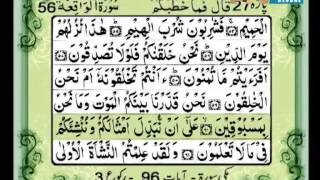 پارہ 27 قال فما خطبکم سورۃ الواقعة 56
الْحَمِيْمِ فَشٰرِبُوْنَ شُرْبَ الْهِيْمِ هٰذَا نُزُلُهُمْ
يَوْمَ الدِّيْنِ نَحْنُ خَلَقْنٰكُمْ فَلَوْلَا تُصَدِّقُوْنَ
اَفَرَءَيْتُمْ مَّا تُمْنُوْنَ ءَاَنْتُمْ تَخْلُقُوْنَهٗۤ اَمْ نَحْنُ
الْخٰلِقُوْنَ نَحْنُ قَدَّرْنَا بَيْنَكُمُ الْمَوْتَ وَمَا نَحْنُ
بِمَسْبُوْقِيْنَ عَلٰۤى اَنْ نُّبَدِّلَ اَمْثَالَكُمْ وَنُنْشِئَكُمْ
فِيْ مَا لَا تَعْلَمُوْنَ وَلَقَدْ عَلِمْتُمُ النَّشْاَةَ الْاُوْلٰى
مکی سورۃ - آیات 96 - رکوع 3